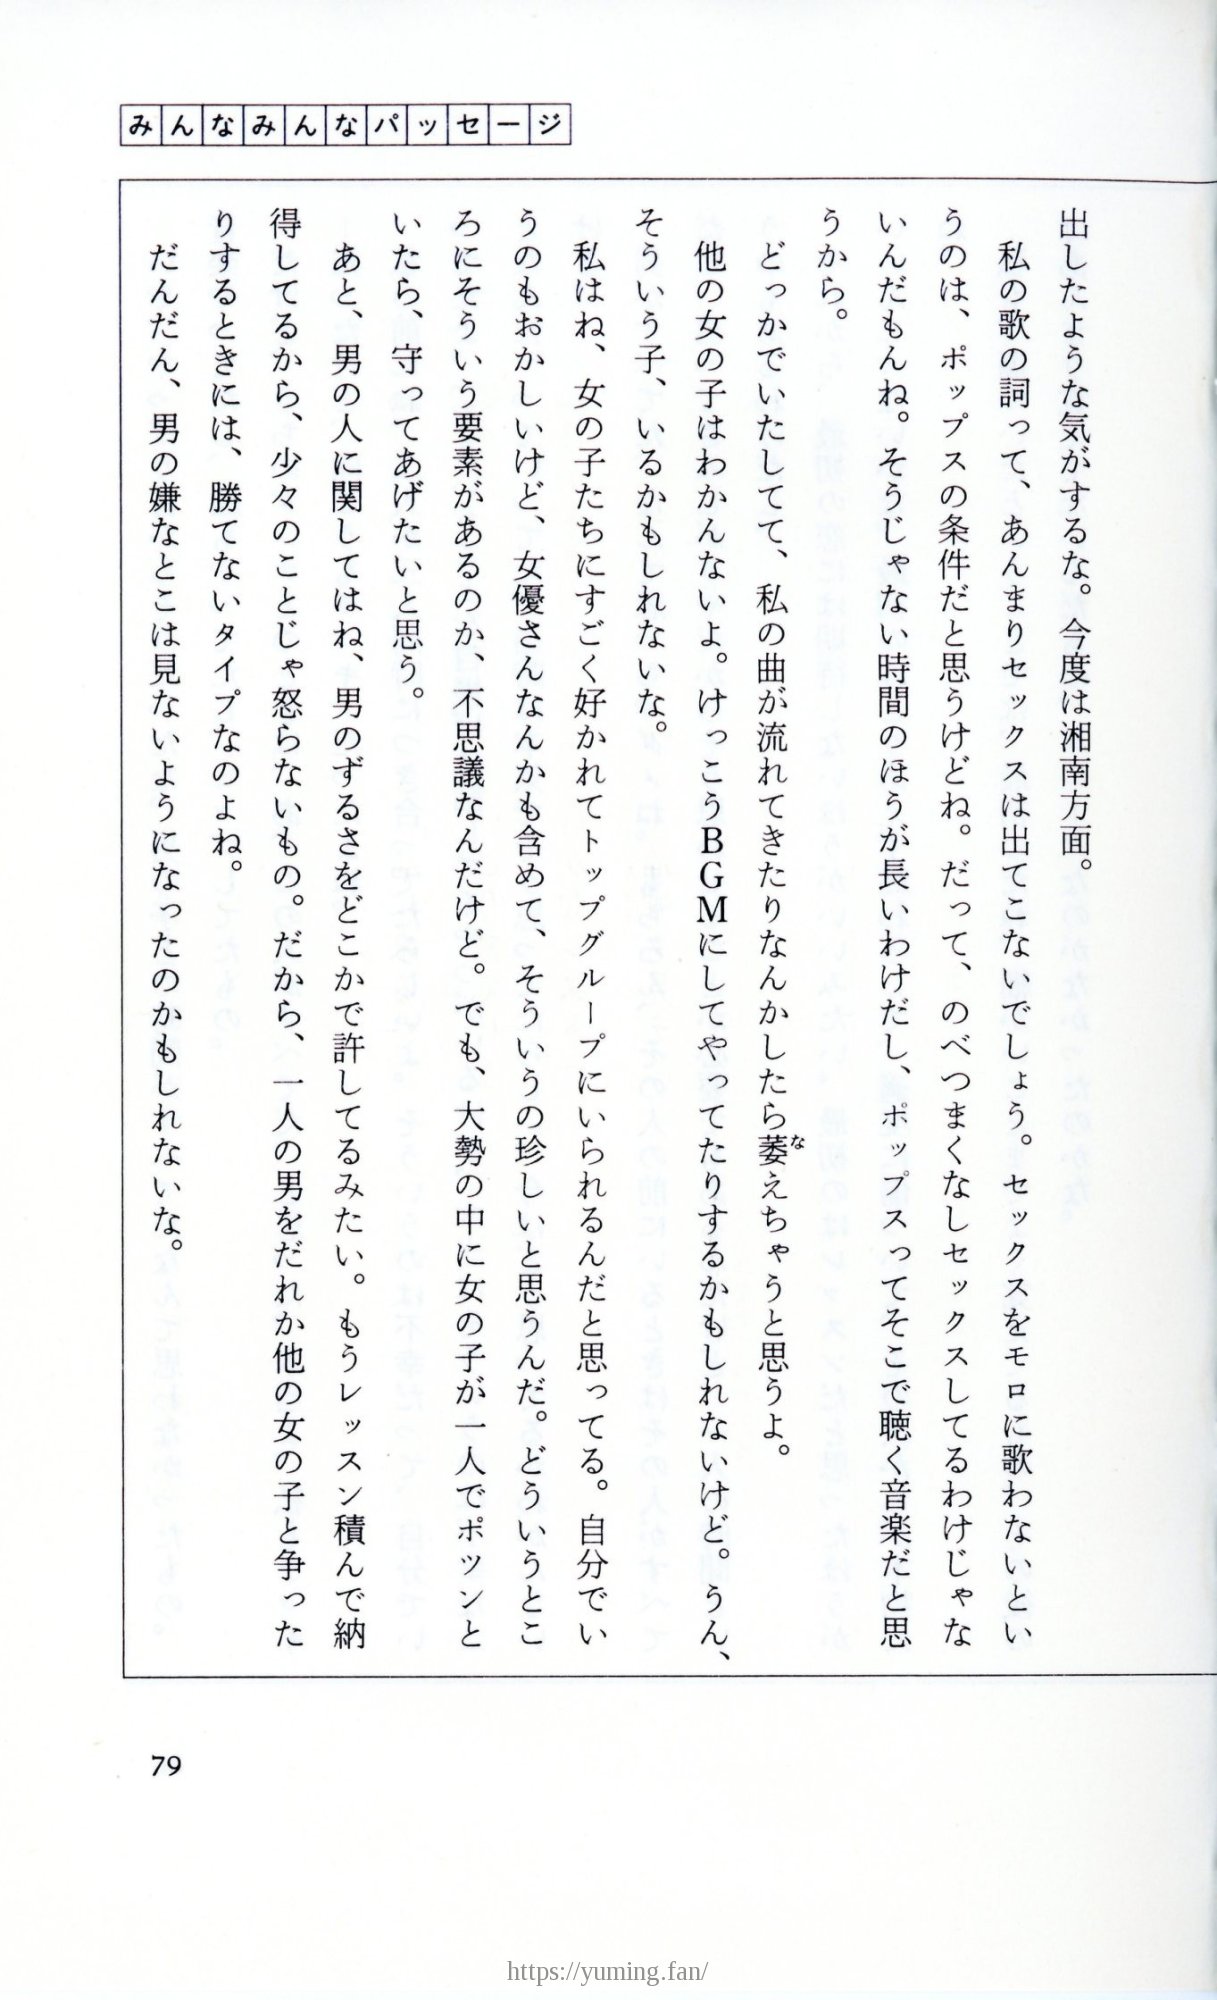 みんなみんなパッセージ
出したような気がするな。今度は湘南方面。
私の歌の詞って、あんまりセックスは出てこないでしょう。セックスをモロに歌わないとい
うのは、ポップスの条件だと思うけどね。だって、のべつまくなしセックスしてるわけじゃな
いんだもんね。そうじゃない時間のほうが長いわけだし、ポップスってそこで聴く音楽だと思
うから。
どっかでいたしてて、私の曲が流れてきたりなんかしたら萎えちゃうと思うよ。
な
他の女の子はわかんないよ。けっこうBGMにしてやってたりするかもしれないけど。うん、
そういう子、いるかもしれないな。
私はね、女の子たちにすごく好かれてトップグループにいられるんだと思ってる。自分でい
うのもおかしいけど、女優さんなんかも含めて、そういうの珍しいと思うんだ。どういうとこ
ろにそういう要素があるのか、不思議なんだけど。でも、大勢の中に女の子が一人でポツンと
いたら、守ってあげたいと思う。
あと、男の人に関してはね、男のずるさをどこかで許してるみたい。もうレッスン積んで納
得してるから、少々のことじゃ怒らないもの。だから、一人の男をだれか他の女の子と争った
りするときには、勝てないタイプなのよね。
だんだん、男の嫌なとこは見ないようになったのかもしれないな。
79
https://yuming.fan/